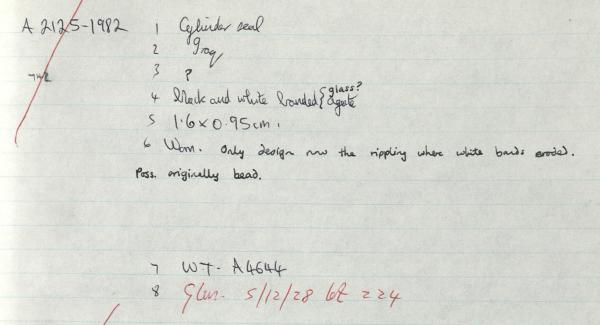 A 2125-1982 1 Cylinder seal
2 Iraq
3 ?
742
4 black and white banded { glass? agate
5 1.6 x 0.95 cm.
6 Worn. Only design now the rippling where white bands eroded.
Poss. originally bead.
7 WT- A4644
8 5/12/28 lot 224